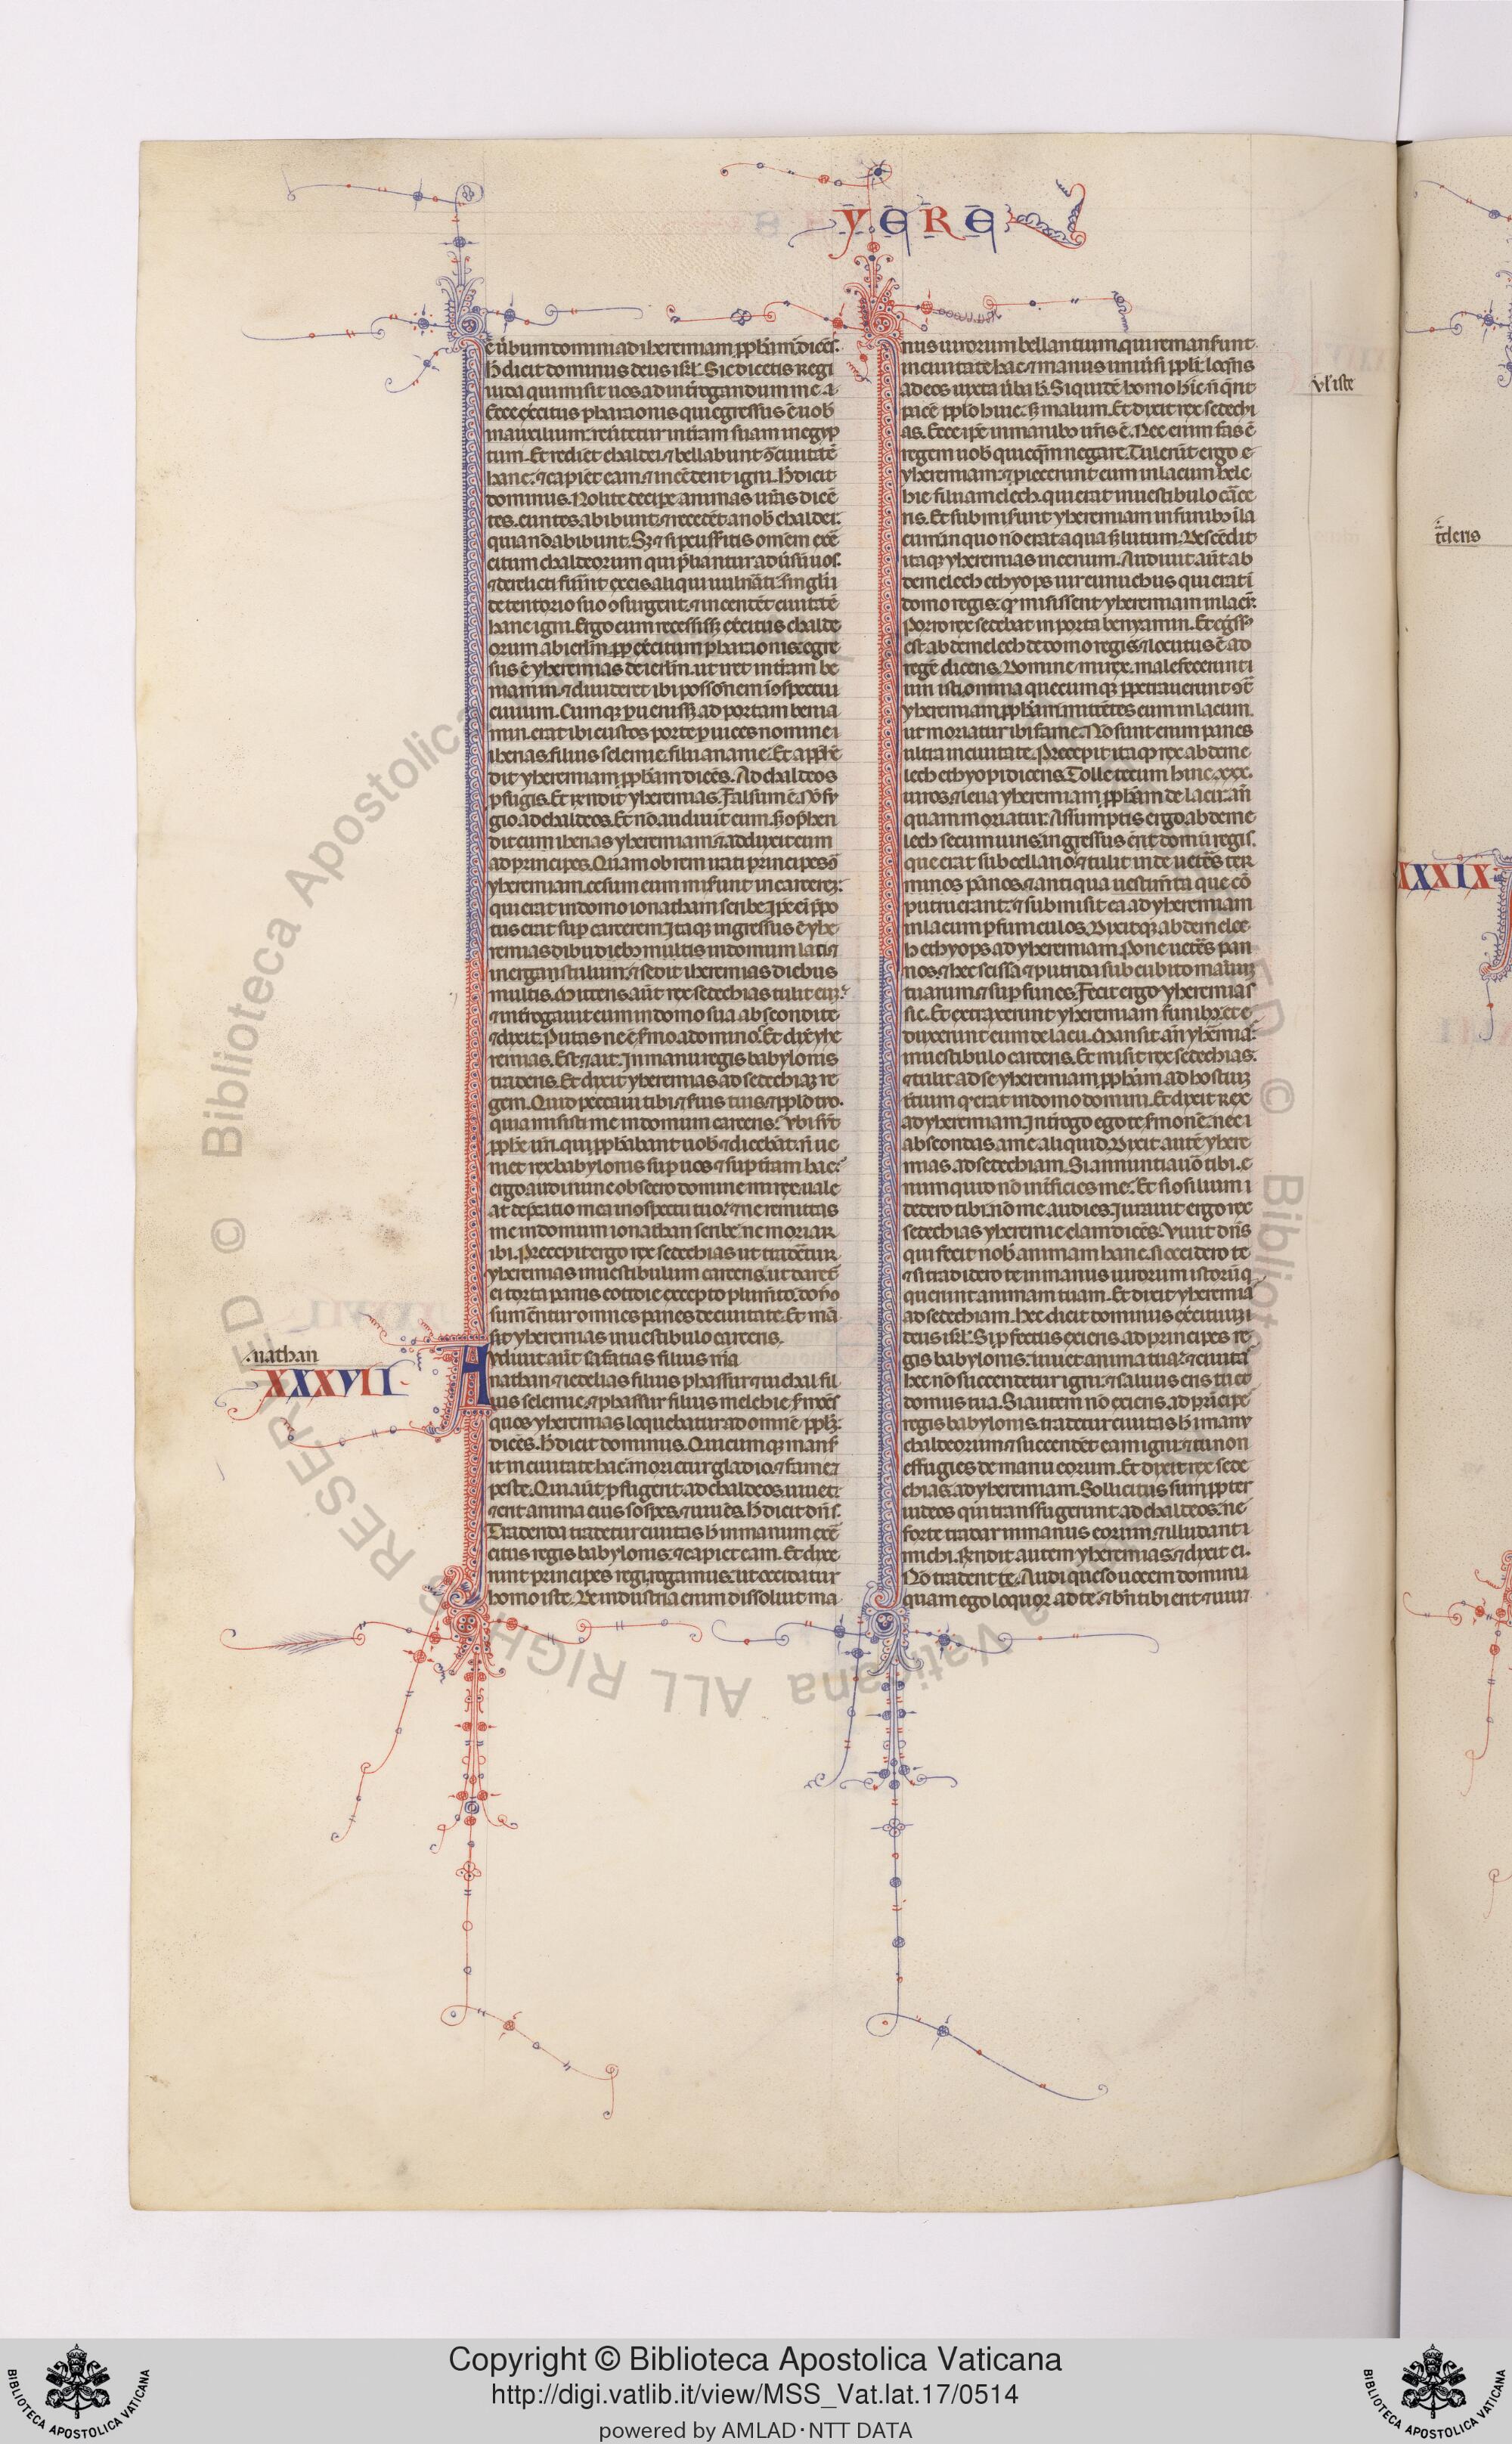 YERE
ē ủbum domini ad iheremiam ꝓphām dicēs.
h̄ dicit dominus deus isrl̄. Sic dicetis regi
iuda qui misit uos ad int̄rogandum me.
Ecce exc̄itus pharaonis qui egressus ē uob̄
in auxilium: reūtetur in t̄ram suam in egyp
tum. Et redient chaldei ⁊ bellabunt ꝯ̄ ciuitatē
hanc: ⁊ capient eam ⁊ incēdent igni. h̄ dicit
dominus. Nolite decipe animas ur̄as dicē
tes. euntes abibunt: ⁊ recedēt a nob̄ chaldei:
quia nō abibunt. Sꝫ ⁊ si ꝑcussitis om̄em exc̄
citum chaldeorum qui p̄liantur aduͥsū uos.
⁊ derelicti fūint ex eis aliqui uuln̄ati: singl̄i
de tentorio suo ꝯsurgent: ⁊ incendēt ciuitatē
hanc igni. Ergo cum recessissꝫ exc̄itus chalde
orum ab ierl̄m ꝓp̄ exc̄itum pharaonis: egre
sus ē yheremias de ierl̄m. ut iret in t̄ram be
niamin. ⁊ diuideret ibi possōnem ī ꝯspectu
ciuium. Cumqꝫ ꝑuenissꝫ ad portam benia
min. erat ibi custos porte ꝑ uices nomine i
iherias. filius selemie. filii ananie. Et app̄hē
dit yheremiam ꝓphām dicēs. Ad chaldeos
ꝓfugis. Et rn̄dit yheremias. Falsum ē. Nō fu
gio ad chaldeos. Et nō audiuit eum. sꝫ ꝯp̄hen
dit eum iherias yheremiam: ⁊ adduxit eum
ad principes. Quam ob rem irati principes ꝯ̄
yheremiam. cesum eum miserunt in carcerꝫ:
qui erat in domo ionatham scribe. Ip̄e eī p̄po
tus erat sup carcerem. Itaqꝫ ingressus ē yhe
remias
in ergastulum: ⁊ sedit iheremias diebus
multis. Mittens aūt rex sedechias tulit eū:
⁊ int̄rogauit eum in domo sua abscondite
⁊ dixit. Putas ne ē sermo a domino? Et dixͥ yhe
remias. Est. ⁊ ait. In manu regis babylonis
traderis. Et dixit yheremias ad sedechiaꝫ re
gem. Quid peccaui tibi ⁊ ẜuis tuis ⁊ pplo tuo.
quia misisti me in domum carceris: Vbi sūt
ꝓphe ur̄i. qui ꝓphābant uob̄ ⁊ dicebāt. n̄ ue
niet rex babylonis sup uos ⁊ sup t̄ram hāc:
ergo audi nunc obsecro domine mi rex: uale
at dep̄catio mea in ꝯspectu tuo: ⁊ ne remittas
me in domum ionathan scribe. ne moriar
ibi. Precepit ergo rex sedechias ut traderetur
yheremias in uestibulum carceris. ut daretᷣ
ei torta panis cottidie excepto pulmento. donec
sumentur omnes panes de ciuitate. Et mā
sit yheremias in uestibulo carceris.
.nathan
XXXVIII
Avdiuit aūt safatias filius ma
nathan ⁊ iedelias filius phassur ⁊ iuchal fil
ius selemie. ⁊ phassur filius melchie. ẜmōes
quos yheremias loquebatur ad omnē pplꝫ:
dicēs. h̄ dicit dominus. Quicumqꝫ mansͥ
it in ciuitate hac: morietur gladio. ⁊ fame ⁊
peste. Qui aūt ꝓfugerit ad chaldeos. uiuet:
⁊ erit anima eius sospes. ⁊ uiuēs. h̄ dicit dn̄s.
Tradenda tradetur ciuitas h̄ in manum exc̄
citus regis babylonis: ⁊ capiet eam. Et dixe
runt principes regi. rogamus. ut occidatur
homo iste. De industria enim dissoluit ma
nus uirorum bellantium. qui remanserunt
in ciuitate hac. ⁊ manus uniuͥsi ppli: loqn̄s
ad eos iuxta ūba h̄. Siquidē homo hic n̄ q̄rit
pacē pplo huic. sꝫ malum. Et dixit rex sedechi
as. Ecce ip̄e in manibꝰ ur̄is ē. Nec enim fas ē
regem uob̄ quicq̄m negare. Tulerūt ergo e
yheremiam: ⁊ ꝓiecerunt eum in lacum hele
hie filii amelech. qui erat in uestibulo carce
ris. Et submiserunt yheremiam in funibꝰ ī la
cum in quo nō erat aqua sꝫ lutum. Descēdit
itaqꝫ yheremias in cenum. Audiuit aūt ab
demelech ethyops uir eunuchus qui erat ī
domo regis: qͥ misissent yheremiam in lacū.
Porro rex sedebat in porta benyamin. Et egssꝰ
est abdemelech de domo regis: ⁊ locutus ē ad
regē dicens. Domine mi rex. malefecerunt i
uiri isti. omnia quecumqꝫ ꝑpetrauerunt ꝯt̄
yheremiam ꝓphām. mittētes eum in lacum.
ut moriatur ibi fame. Nō sunt enim panes
ultra in ciuitate. Precepit itaqꝫ rex abdeme
lech ethyopi dicens. Tolle tecum hinc .xxx.
uiros. ⁊ leua yheremiam ꝓphām de lacu: an̄
quam moriatur. Assumptis ergo abdeme
lech secum uiris. ingressus est domū regis.
que erat sub cellario: ⁊ tulit inde uetēs ter
minos pānos. ⁊ antiqua uestimēta que cō
putruerant: ⁊ submisit ea ad yheremiam
in lacum ꝑ funiculos. Dixitqꝫ abdemelec
h ethyops ad yheremiam. Pone uetēs pan
nos. ⁊ hec scissa ⁊ putrida sub cubito manuū
tuarum: ⁊ sup funes. Fecit ergo yheremias
sic. Et extraxerunt yheremiam funibꝰ: et e
duxerunt eum de lacu. Mansit aūt yheremias
in uestibulo carceris. Et misit rex sedechias:
⁊ tulit ad se yheremiam ꝓphām ad hostiuꝫ
t̄cium qͥ erat in domo domini. Et dixit rex
ad yheremiam. Int̄rogo ego te ẜmonē: ne i
abscondas a me aliquid. Dixit autē yhere
mias. ad sedechiam. Si annuntiauō tibi. e
numquid nō int̄ficies me: Et si ꝯsilium i
dedero tibi. nō me audies. Iurauit ergo rex
sedechias yheremie clam dicēs. Viuit dn̄s
qui fecit nob̄ animam hanc. si occidero te
⁊ si tradidero te in manus uirorum istorū q̄
querunt animam tuam. Et dixit yheremia
ad sedechiam. Hec dicit dominus exc̄ituū
deus isrl̄. Si ꝓfectus exieris ad principes re
gis babylonis: uiuet anima tua: ⁊ ciuita
hec nō succendetur igni: ⁊ saluus eris tu et
domus tua. Si autem nō exieris. ad prīcipe
regis babylonis. tradetur ciuitas h̄ ī manu
chaldeorum ⁊ succendēt eam igni: ⁊ tu non
effugies de manu eorum. Et dixit rex sede
chias. ad yheremiam. Sollicitus sum ꝓpter
iudeos qui transfugerunt ad chaldeos: ne
forte tradar in manus eorum: ⁊ illudant i
michi. Rn̄dit autem yheremias: ⁊ dixit ei.
Nō tradent te. Audi queso uocem domini
quam ego loquor ad te. ⁊ bn̄ tibi erit ⁊ uiuͥ
XXXIX
Copyright © Biblioteca Apostolica Vaticana
http://digi.vatlib.it/view/MSS_Vat.lat.17/0514
powered by AMLAD·NTT DATA
BIBLIOTECA APOSTOLICA VATICANA
BIBLIOTECA APOSTOLICA VATICANA